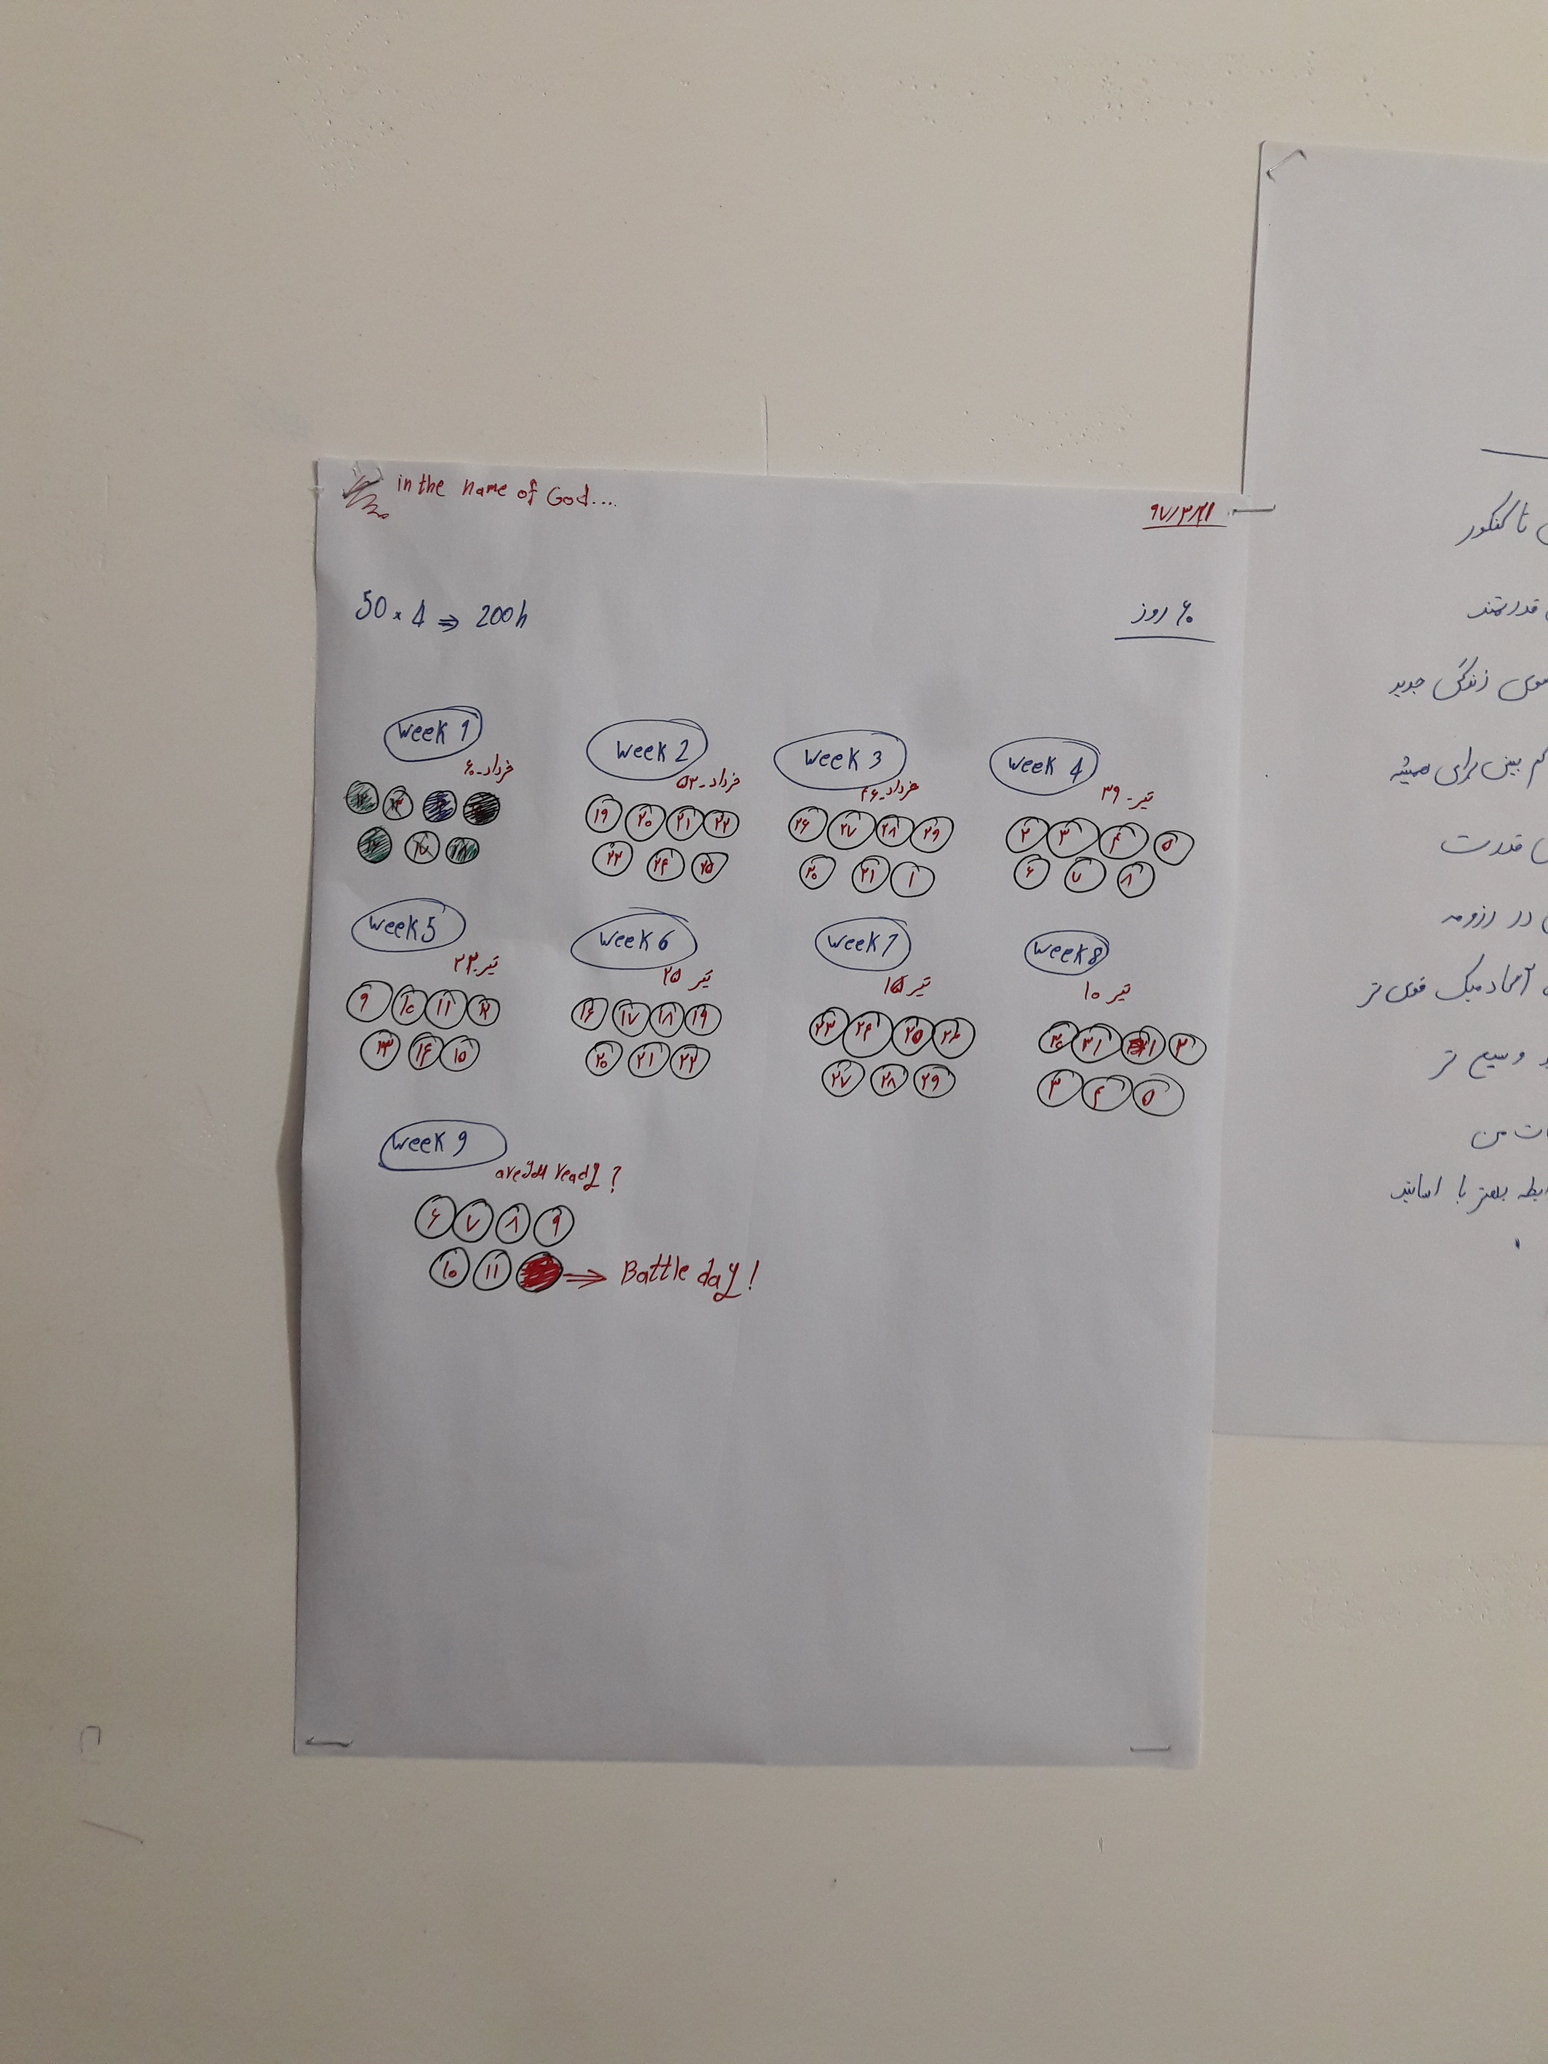 in the name of God....
50 × 4 ⇒ 200h
۶۰ روز
week 1
خرداد ـ ۶۰
week 2
خرداد ـ ۵۳
۱۹ ۲۰ ۲۱ ۲۲
۲۳ ۲۴ ۲۵
week 3
خرداد ـ ۴۶
۲۶ ۲۷ ۲۸ ۲۹
۳۰ ۳۱ ۱
week 4
تیر ـ ۳۹
۲ ۳ ۴ ۵
۶ ۷ ۸
week 5
تیر
۹ ۱۰ ۱۱ ۱۲
۱۳ ۱۴ ۱۵
week 6
تیر ۲۵
۱۶ ۱۷ ۱۸ ۱۹
۲۰ ۲۱ ۲۲
week 7
تیر ۱۵
۲۳ ۲۴ ۲۵ ۲۶
۲۷ ۲۸ ۲۹
week 8
تیر ۱۰
۳۰ ۳۱ ۱ ۲
۳ ۴ ۵
week 9
are you ready ?
۶ ۷ ۸ ۹
۱۰ ۱۱ ⇒ Battle day !
تا کنکور
قدرتمند
زندگی جدید
کم بین برای همیشه
قدرت
در رزومه
آکادمیک قوی تر
وسیع تر
من
بهتر با اساتید